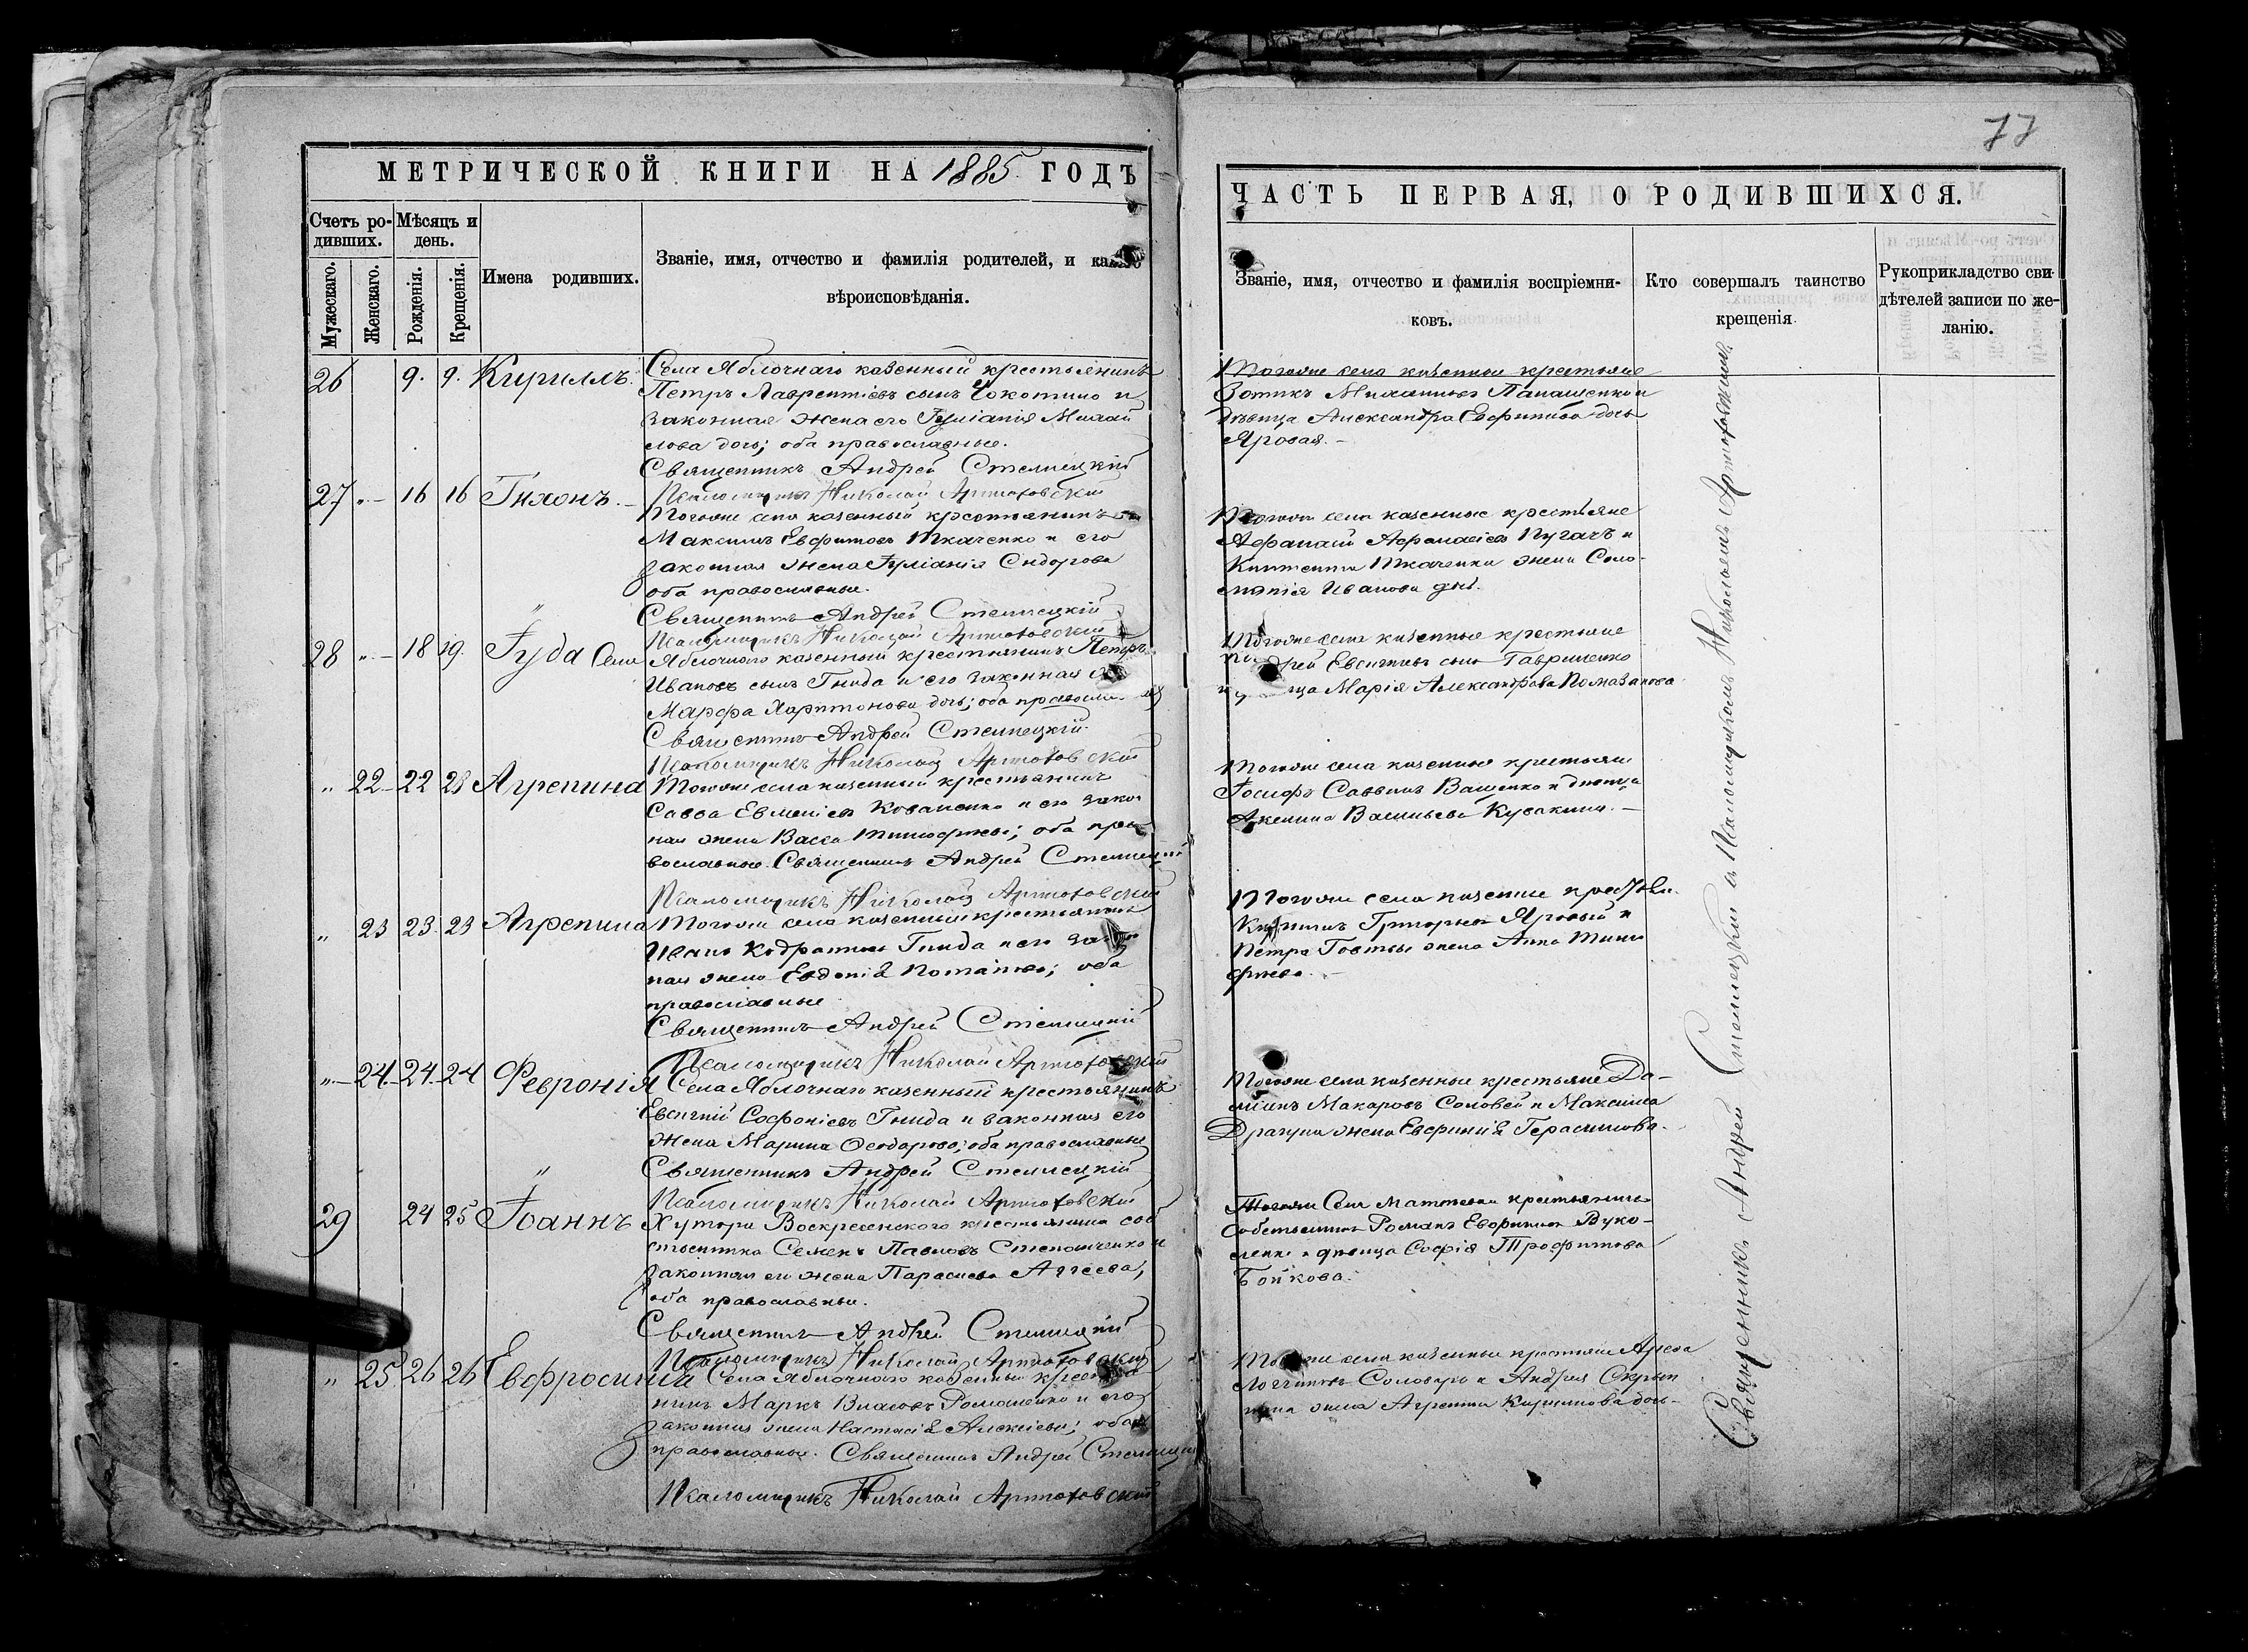 77
МЕТРИЧЕСКОЙ КНИГИ НА 1885 ГОДЪ
Счетъ ро-
дивших.
Мужескаго.
Женскаго.
Мѣсяцъ и
день.
Рожденія.
Крещенія.
Имена родивших.
Званіе, имя, отчество и фамилія родителей, и
вѣроисповѣданія.
26 9. 9. Кириллъ.
Села Яблочнаго казенный крестьянинъ
Петръ Лаврентіевъ сынъ и
законная жена его Іуліанія Михай
лова дочь; оба православные.
Священникъ Андрей Стеллецкій
Псаломщикъ Николай Артюховскій
27 „ 16 16 Тихонъ.
Тогоже села казенный крестьянинъ
Максимъ Евфимовъ Ткаченко и его
законная жена Іуліанія Сидорова
оба православные.
Священникъ Андрей Стеллецкій
Псаломщикъ Николай Артюховскій
28 „ 18 19. Іуда
Села Яблочнаго казенный крестьянинъ Петръ
Ивановъ сынъ Гнида и его законная
Марфа Харитонова дочь; оба
Священникъ Андрей Стеллецкій
Псаломщикъ Николай Артюховскій
„ 22 22 23 Агрепина
Тогоже села казенный крестьянинъ
Савва Евменіевъ Коваленко и его закон
ная жена Васса Тимофеева; оба пра
вославные. Священникъ Андрей Стеллецкій
Псаломщикъ Николай Артюховскій
„ 23 23 23 Агрепина
Тогоже села казенный крестьянинъ
Иванъ Кодратовъ Гнида и его
ная жена Евдокія; оба
православные
Священникъ Андрей Стеллецкій
Псаломщикъ Николай Артюховскій
„ 24 24 24 Февронія
Села Яблочнаго казенный крестьянинъ
Евсигній Софроніевъ Гнида и законная его
жена Марина Ѳеодорова; оба православные
Священникъ Андрей Стеллецкій
Псаломщикъ Николай Артюховскій
29 24 25 Іоаннъ
Хутора Воскресенского крестьянина соб
ственника Семенъ Павловъ и
законная его жена Параскева Аггеева;
оба православные.
Священникъ Андрей Стеллецкій
Псаломщикъ Николай Артюховскій
„ 25 26 26 Евфросинія
Села Яблочнаго казенный крестья
нинъ Маркъ Власовъ Романенко и его
законная жена Настасія Алексіева; оба
православные. Священникъ Андрей Стеллецкій
Псаломщикъ Николай Артюховскій
ЧАСТЬ ПЕРВАЯ, О РОДИВШИХСЯ.
Званіе, имя, отчество и фамилія воспріемни-
ковъ.
Кто совершалъ таинство
крещенія.
Рукоприкладство сви-
дѣтелей записи по же-
ланію.
Тогоже села казенные крестьяне
Зотикъ Михайловъ Папащенко и
дѣвица Александра Евфимова дочь
Яровая.
Тогоже села казенные крестьяне
Афанасій Афанасіевъ Пугачъ и
Ткаченка жена Соло-
монія Иванова дочь.
Тогоже села казенные крестьяне
Евсигніевъ сынъ Гавриленко
Марія Александрова Помазанова
Тогоже села казенные крестьяне
Іосифъ Саввинъ Ващенко и дѣвица
Акилина Васильева Кусакина.
Тогоже села казенные крестьяне
Григорьевъ Яровый и
Петра жена Анна Тимо
феева.
Тогоже села казенные крестьяне Да-
міанъ Макаровъ Соловей и Максима
Драгуна жена Евфимія Герасимова.
Тогоже Села крестьянинъ
собственникъ Романъ
и дѣвица Софія Трофимова
Бойкова.
села казенные крестьяне
и Андрея Скрып
жена Агрепина Кириллова дочь
Священникъ Андрей Стеллецкій съ Псаломщикомъ Николаемъ Артюховскимъ